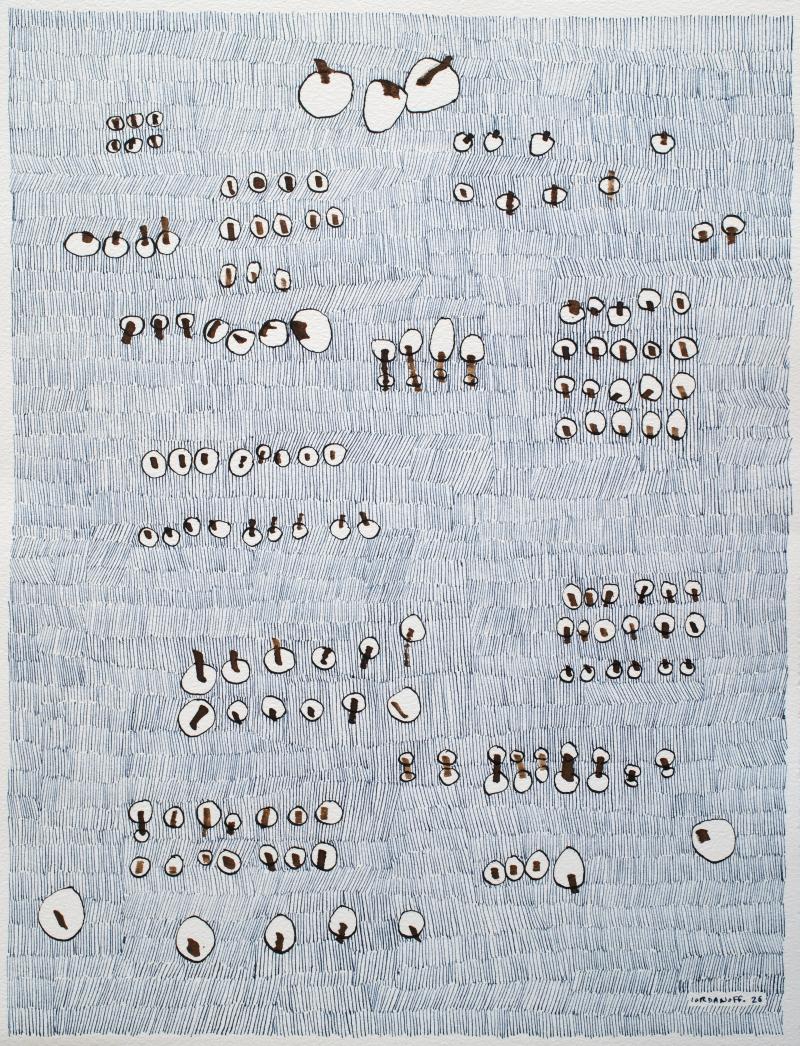 IORDANOFF. 26